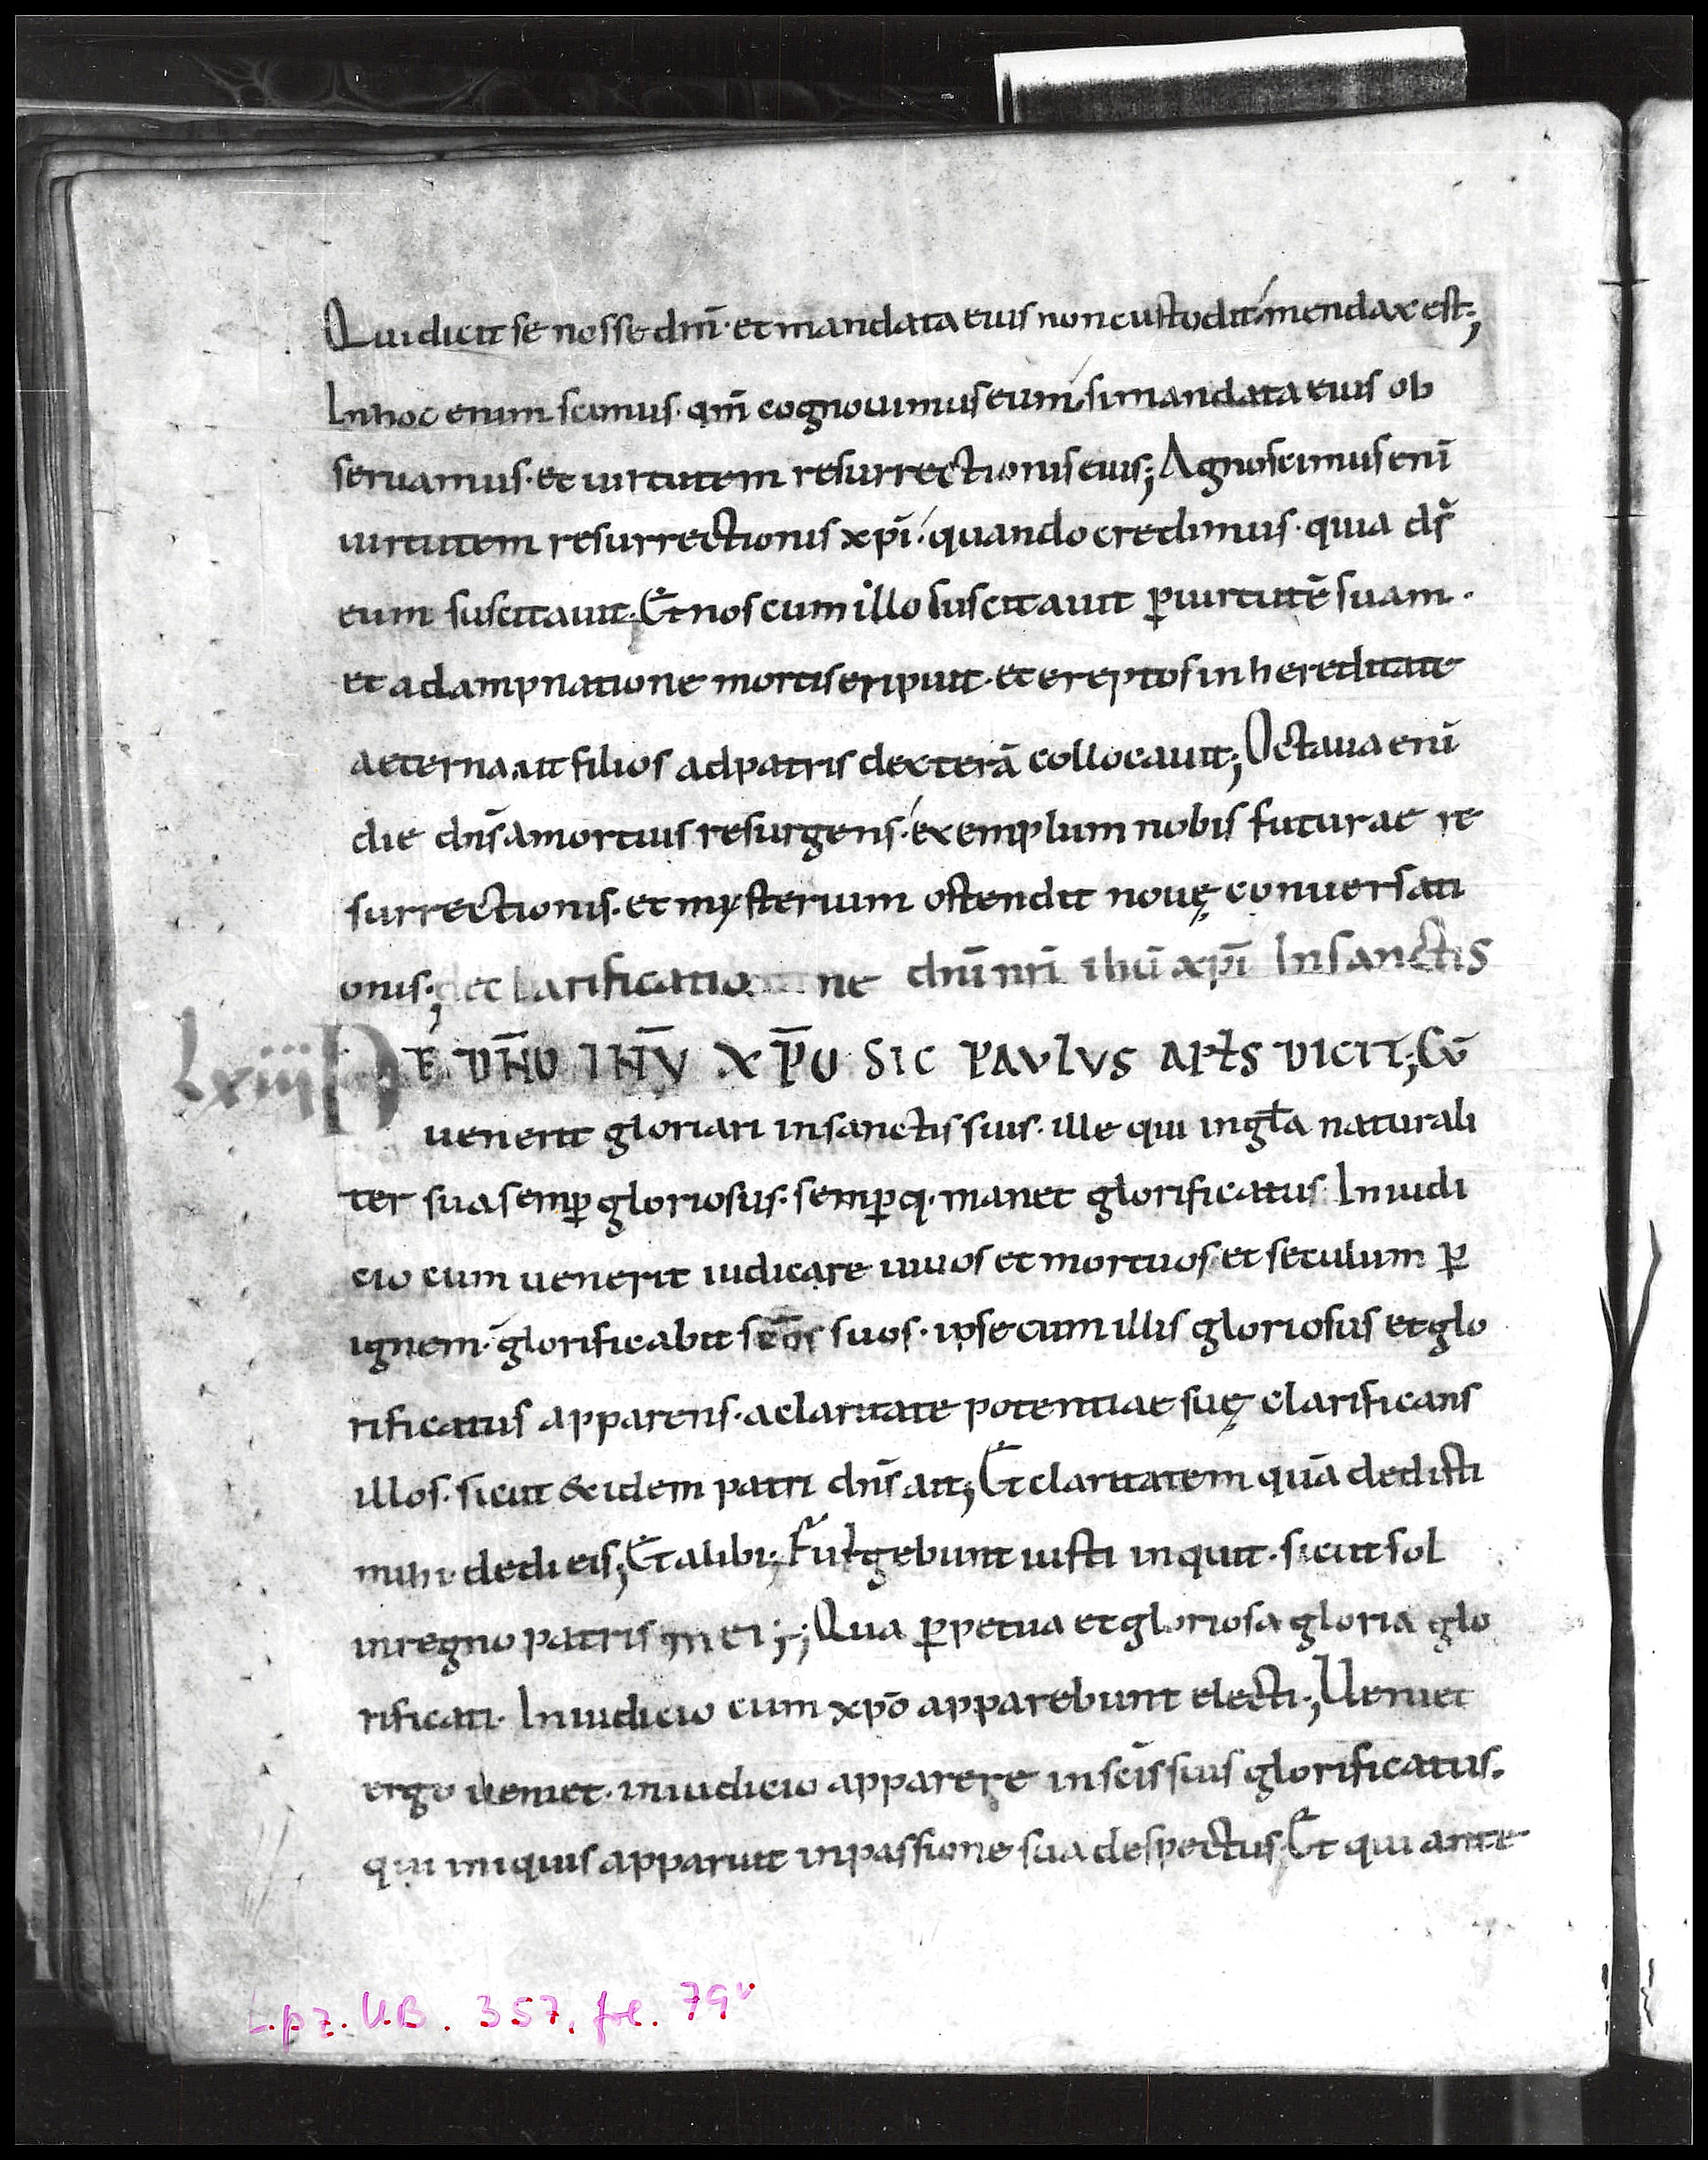 Qui dicit se nosse dnī· et mandata eius non custodit mendax est;
In hoc enim scimus· qm̄ cognouimus eum si mandata eius ob
seruamus· et uirtutem resurrectionis eius; Agnoscimus enī
uirtutem resurrectionis xpī· quando credimus· quia ds̄
eum suscitauit· Et nos cum illo suscitauit ꝑ uirtutē suam·
et adampnatione mortis eripuit· et ereptos in hereditate
aeterna ut filios ad patris dexterā collocauit; Octaua enī
die dns̄ a mortuis resurgens· exemplum nobis futurae re
surrectionis· et mysterium ostendit nouę conuersati
onis; de clarificatione dnī nrī ihū xpī In sanctis
Lxiii DE DN̄O IHV̄ XP̄O SIC PAVLVS APƚS DICIT; CV̄
uenerit gloriari in sanctis suis· ille qui in gƚa naturali
ter sua semꝑ gloriosus· semꝑq· manet glorificatus In iudi
cio cum uenerit iudicare uiuos et mortuos· et seculum ꝑ
ignem· glorificabit scōs suos· ipse cum illis gloriosus et glo
rificatus apparens· a claritate potentiae suę clarificans
illos· sicut & idem patri dns̄ ait; Et claritatem quā dedisti
mihi· dedi eis; Et alibi; Fulgebunt iusti inquit· sicut sol
in regno patris mei; Qua ꝑpetua et gloriosa gloria glo
rificati· In iudicio cum xpō apparebunt electi; Ueniet
ergo ueniet· in iudicio apparere in scīs suis glorificatus·
qui iniquis apparuit in passione sua despectus· Et qui ante
Lpz. U.B. 357, fol. 79v